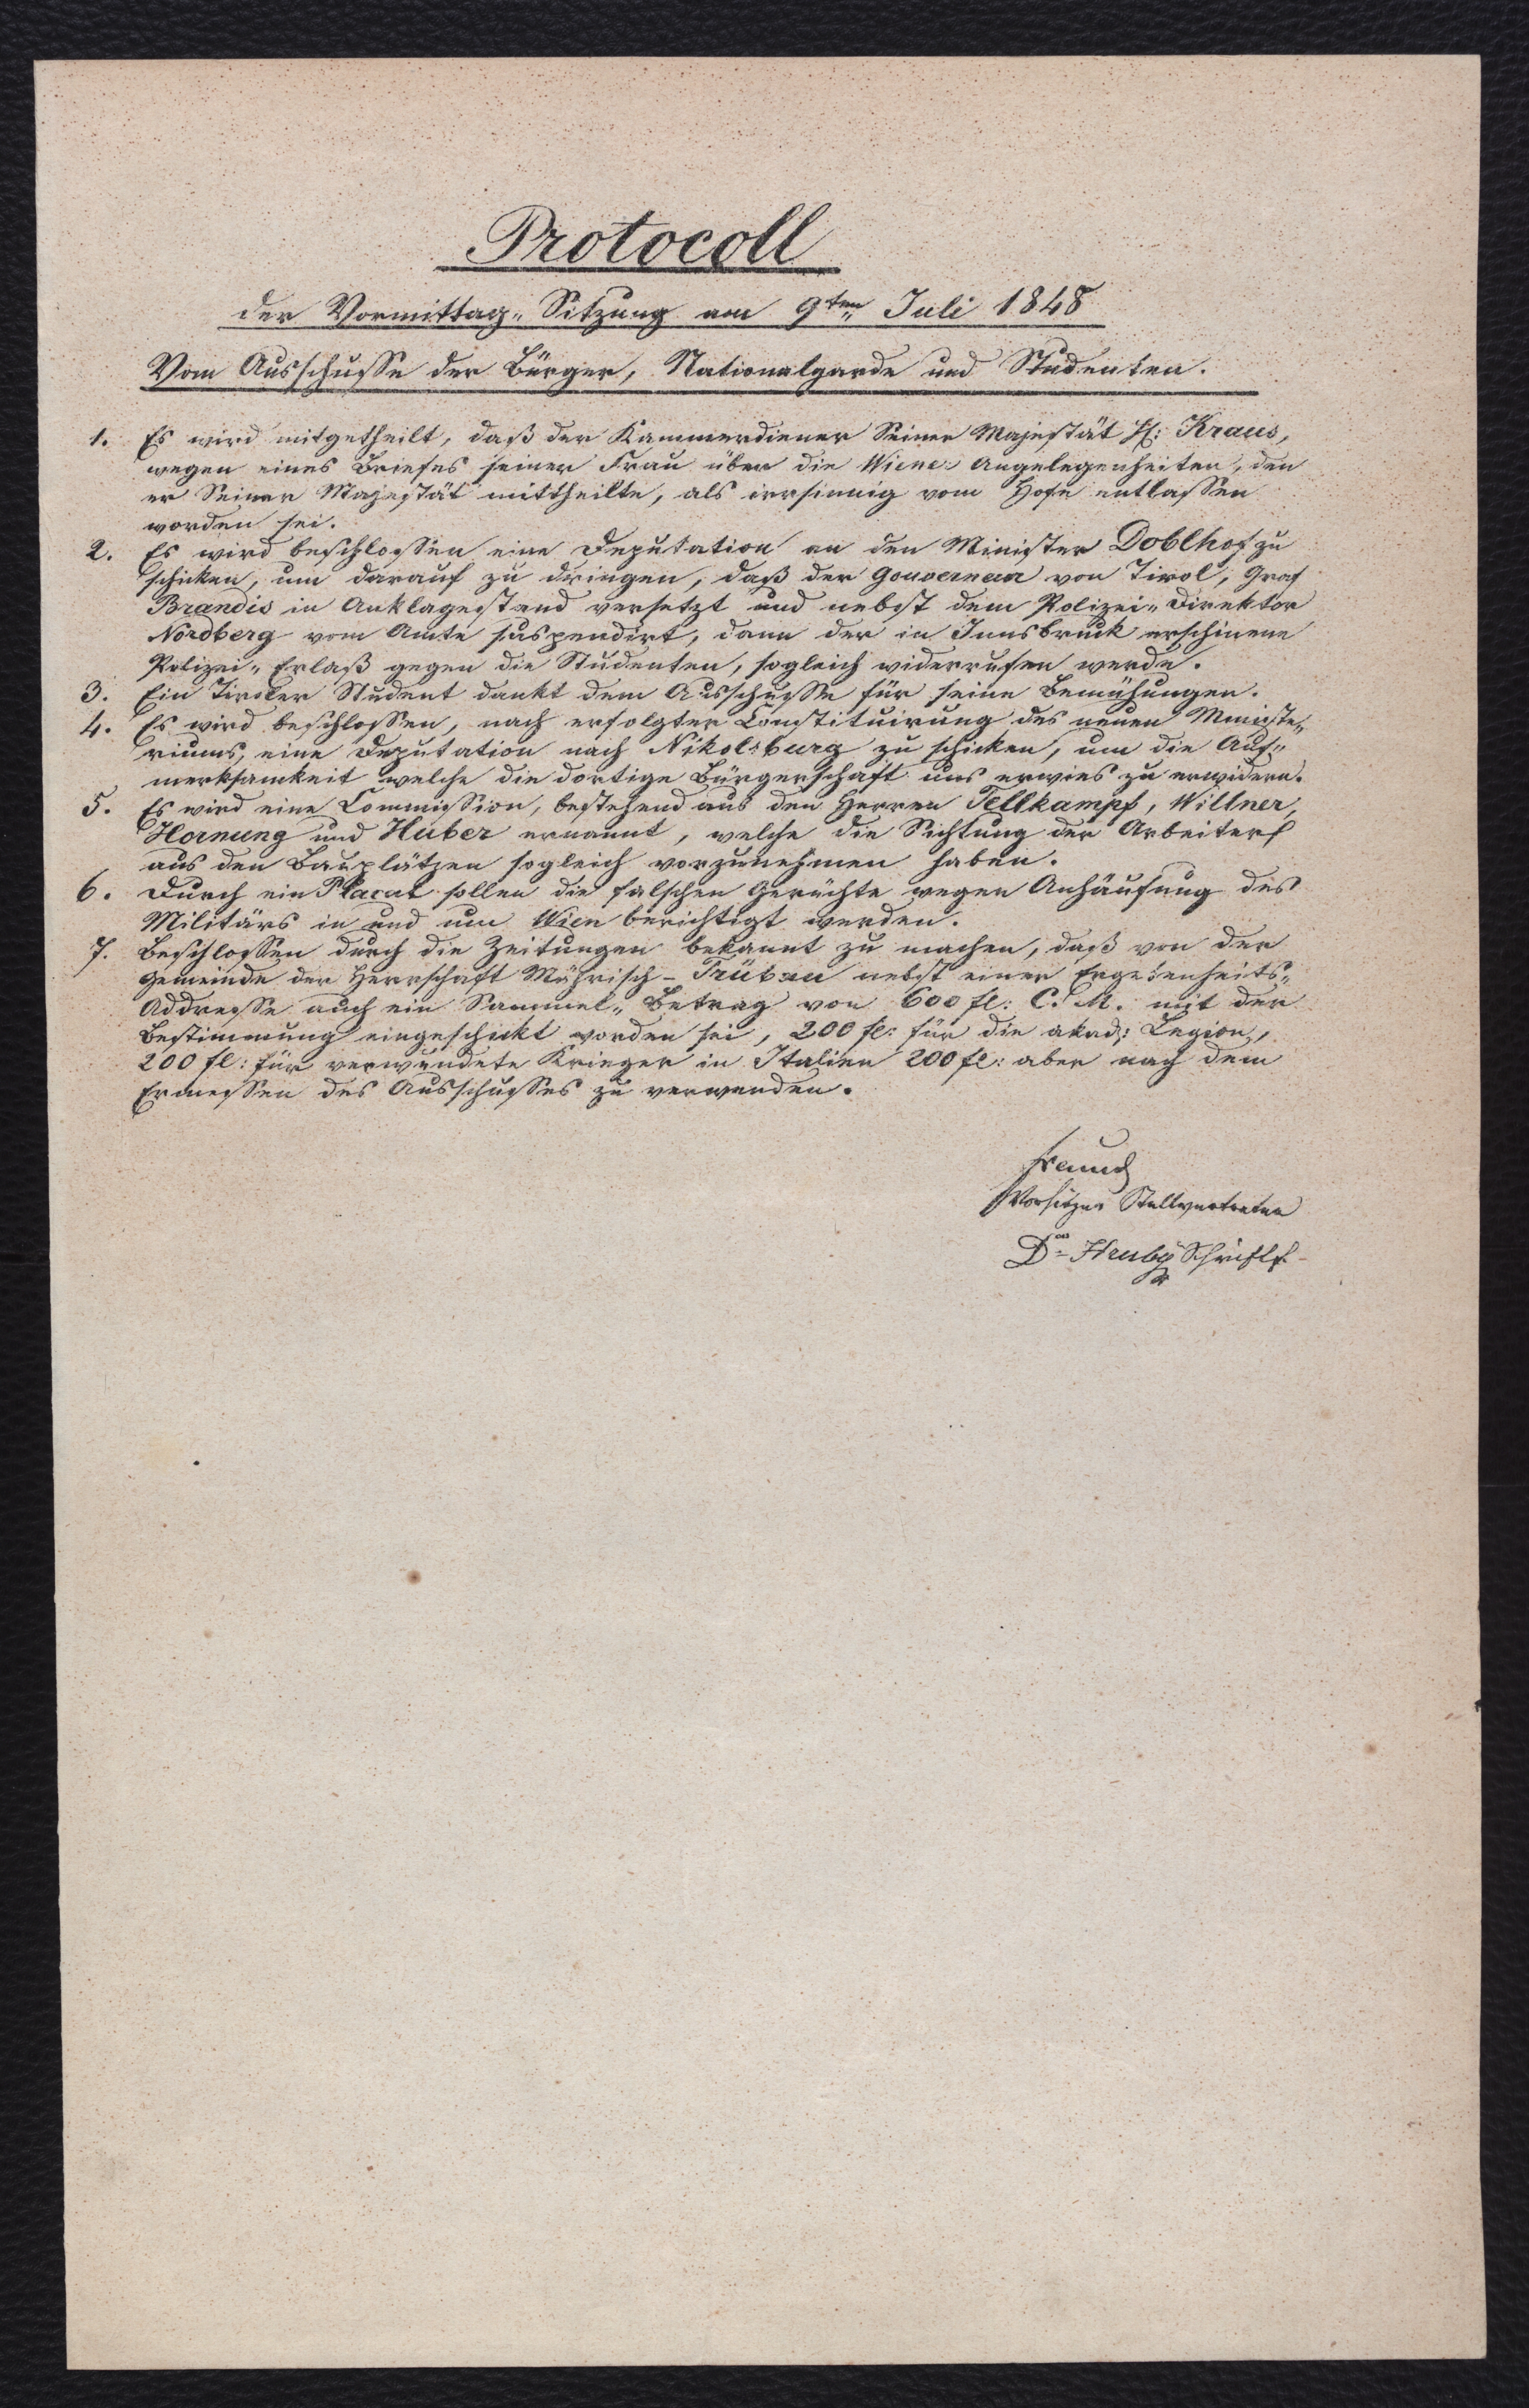 Protocoll
der Vormittag„ Sitzung am 9ten Juli 1848
Vom Ausschusse der Bürger, Nationalgarde und Studenten.
1. Es wird mitgetheilt, daß der Kammerdiener Seiner Majestät H: Kraus,
wegen eines Briefes seiner Frau über die Wiener Angelegenheiten, den
er Seiner Majestät mittheilte, als irrsinnig vom Hofe entlassen
worden sei.
2. Es wird beschlossen eine Deputation an den Minister Doblhof zu
schicken, um darauf zu dringen, daß der Gouverneur von Tirol, Graf
Brandis in Anklagestand versetzt und nebst dem Polizei„ Direktor
Nordberg vom Amte suspendirt, dann der in Innsbruck erschinene
Polizei„ Erlaß gegen die Studenten, sogleich widerrufen werde.
3. Ein Tiroler Student dankt dem Ausschusse für seine Bemühungen.
4. Es wird beschlossen, nach erfolgter Constituirung des neuen Ministe„
riums, eine Deputation nach Nikolsburg zu schicken, um die Auf„
merksamkeit welche die dortige Bürgerschaft uns erwies zu erwidern.
5. Es wird eine Commission, bestehend aus den Herren Tellkampf, Willner,
Hornung und Huber ernannt, welche die Sichtung der Arbeiter
aus den Bauplätzen sogleich vorzunehmen haben.
6. Durch ein Placat sollen die falschen Gerüchte wegen Anhäufung des
Militärs in und um Wien berichtigt werden.
7. Beschlossen durch die Zeitungen bekannt zu machen, daß von der
Gemeinde der Herrschaft Mährisch-Trübau nebst einer Ergebenheits„
Addresse auch ein Sammel„ Betrag von 600 fl: C. M. mit der
Bestimmung eingeschickt worden sei, 200 fl: für die akad: Legion,
200 fl: für verwundete Krieger in Italien 200 fl: aber nach dem
Ermessen des Ausschusses zu verwenden.
Freund
Vorsitzer Stellvertreter
Dr Hruby Schriftf